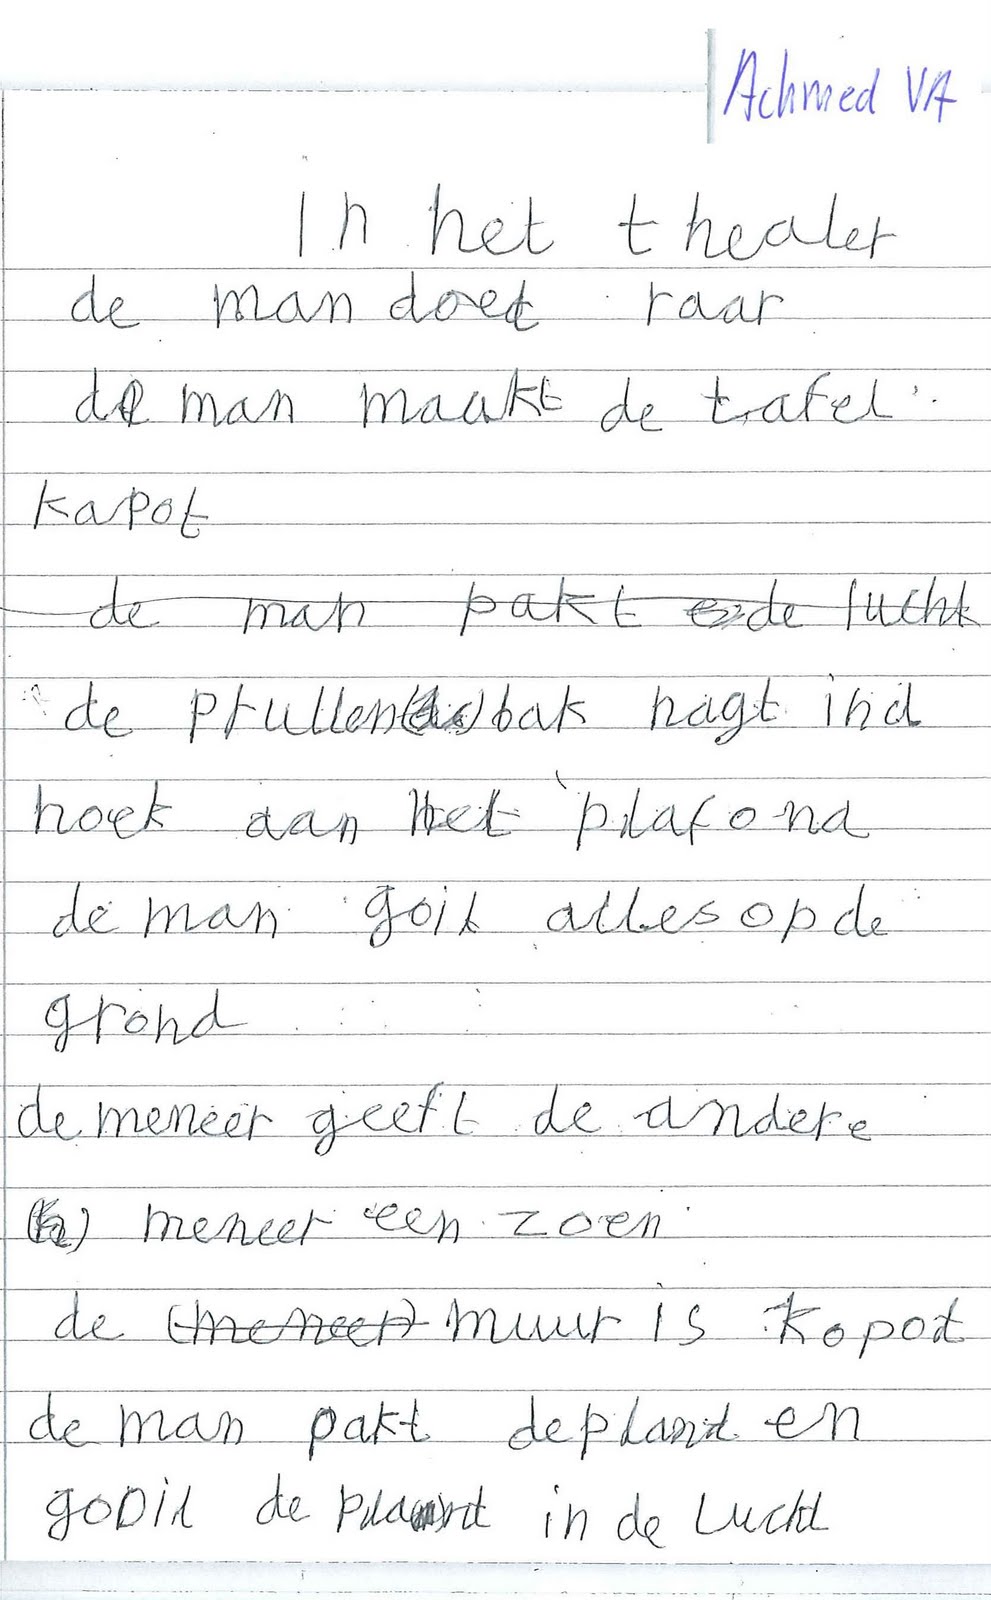 Achmed VA
In het theater
de man doet raar
de man maakt de tafel
kapot
de man pakt de lucht
de prullenbak hagt ind
hoek aan het plafond
de man goit alles op de
grond
de meneer geeft de andere
meneer een zoen
de (meneer) muur is kopot
de man pakt de plant en
gooit de plant in de lucht